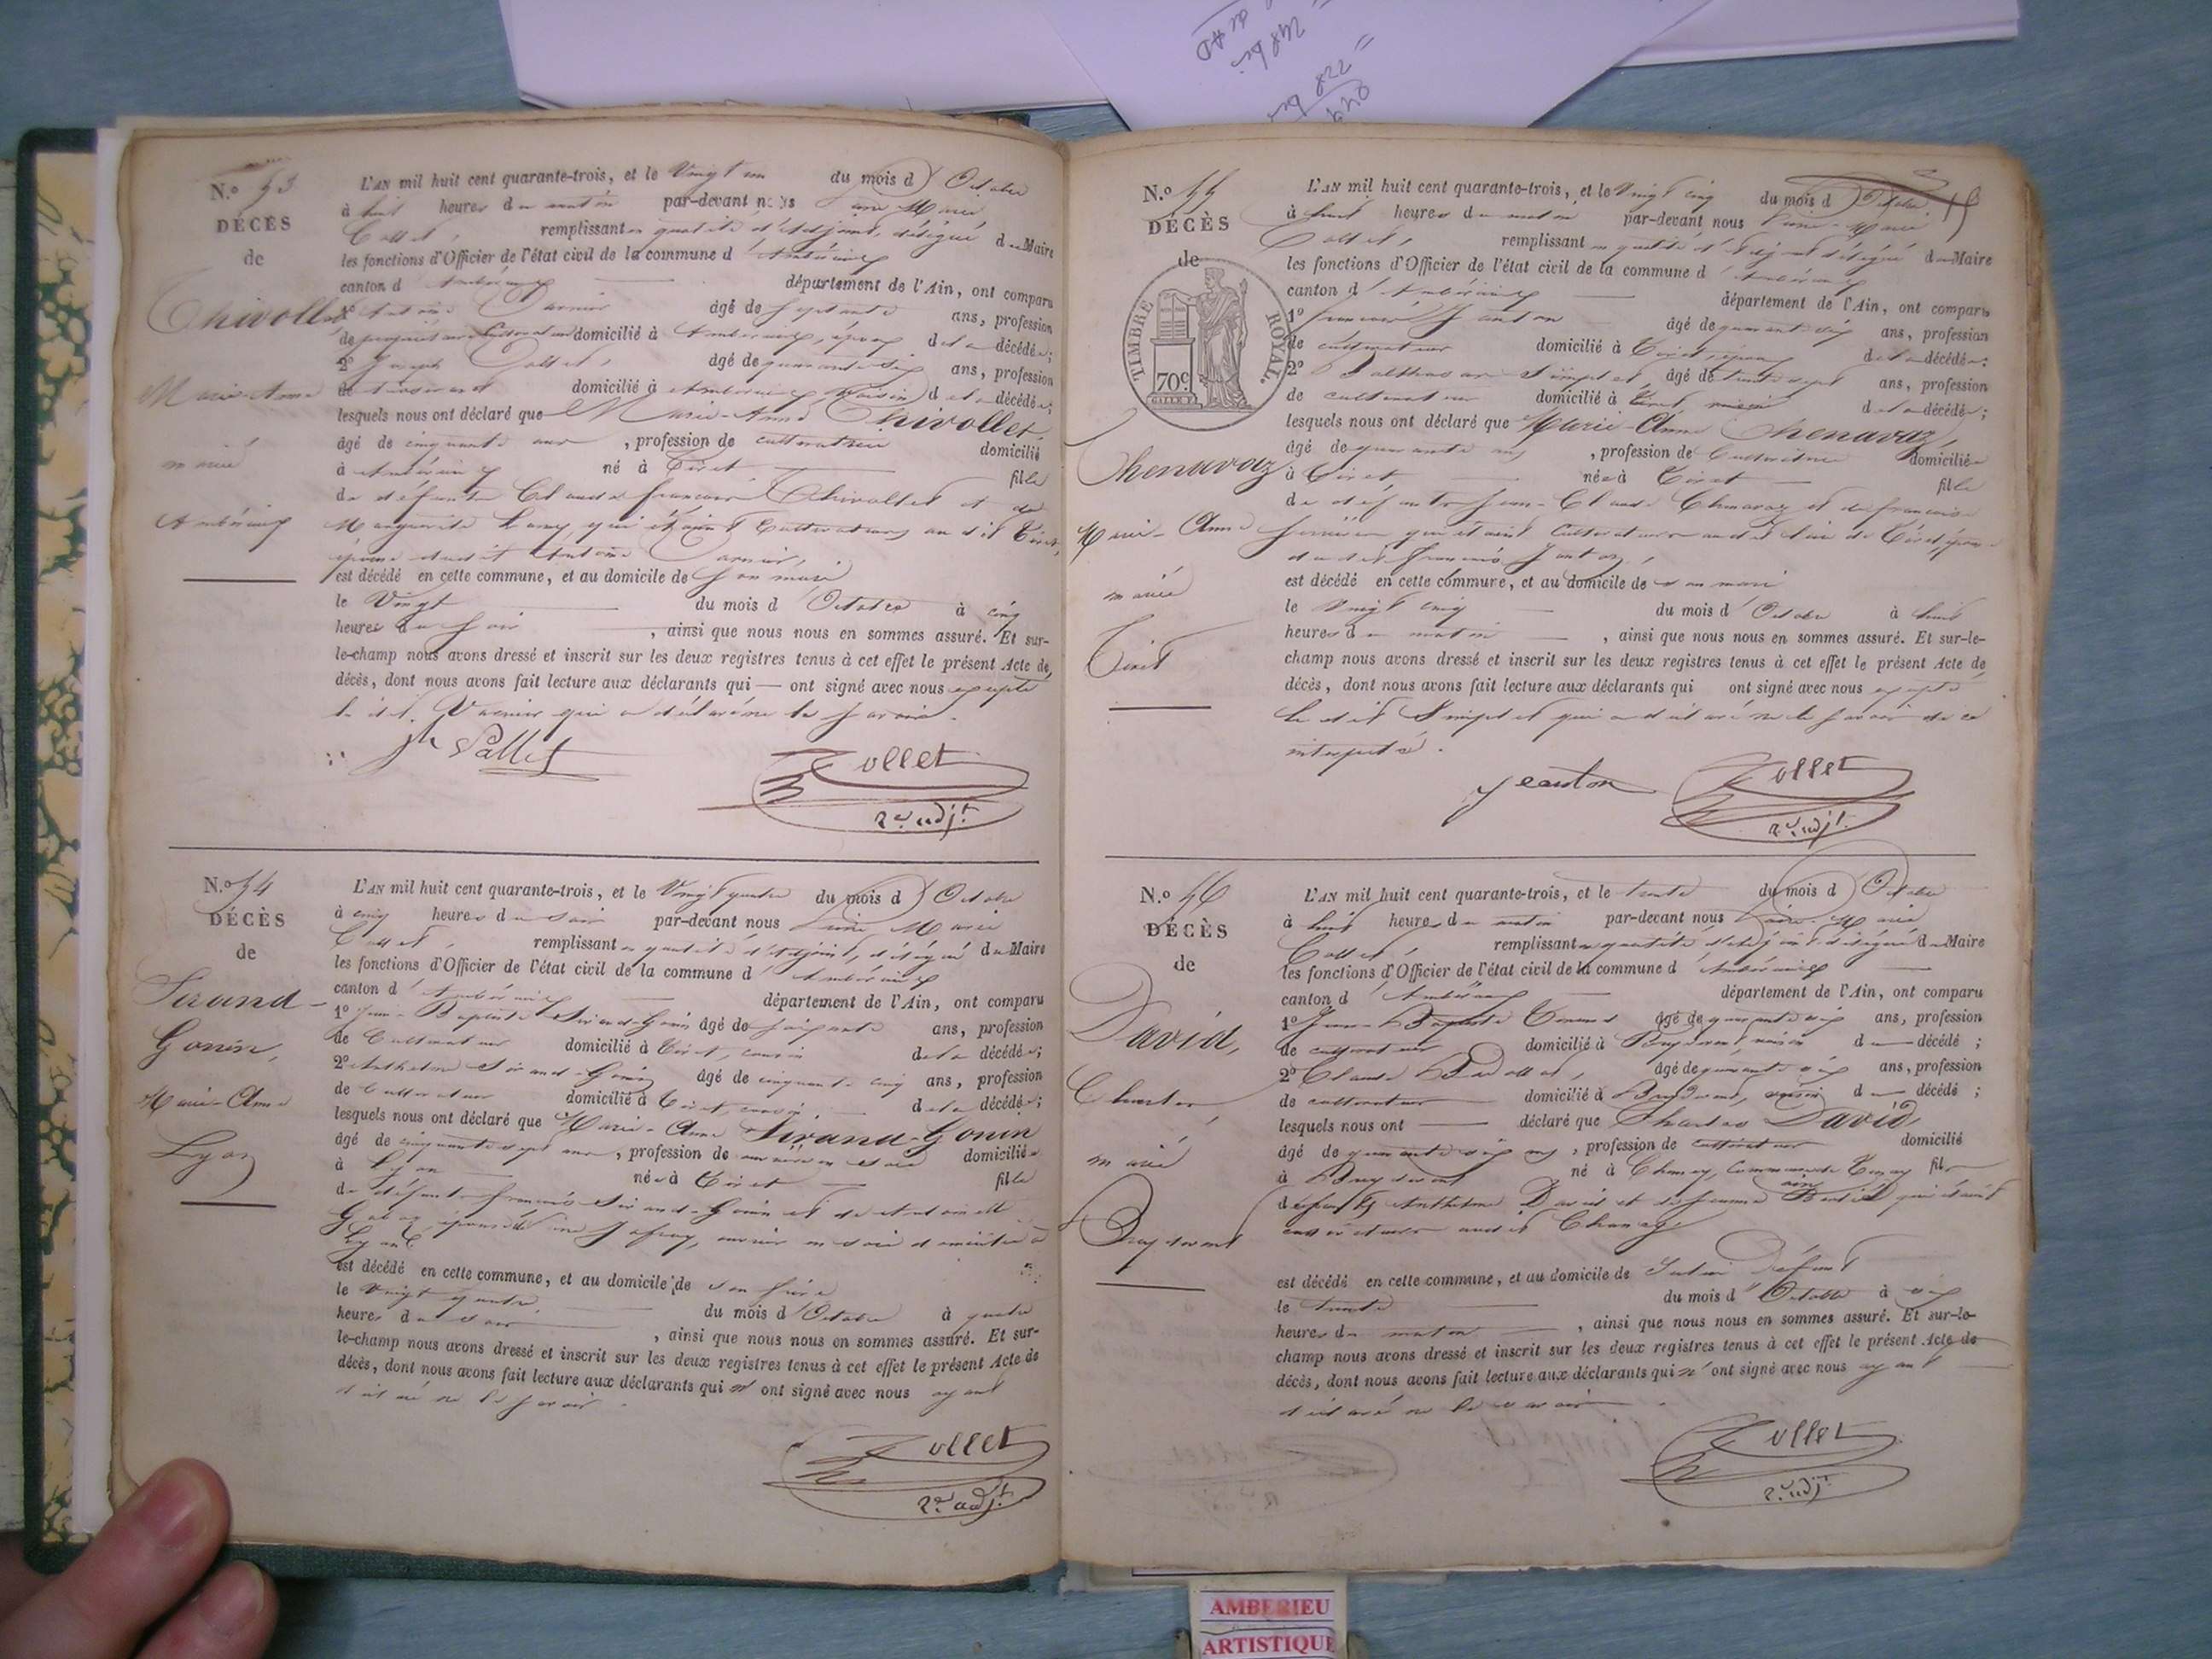 N.o 53
DÉCÈS
de
Chivollet
Marie-Anne
mariée
Ambérieux
L'AN mil huit cent quarante-trois, et le Vingt un du mois d'Octobre
à huit heures du matin par-devant nous Pierre Marie
Collet, remplissant en qualité d'Adjoint, délégué du Maire
les fonctions d'Officier de l'état civil de la commune d'Ambérieux
canton d'Ambérieux département de l'Ain, ont comparu
1o Antoine âgé de septante ans, profession
de propriétaire cultivateur domicilié à Ambérieux, époux de la décédée;
2o Joseph âgé de quarante six ans, profession
de tisserand domicilié à Ambérieux, voisin de la décédée;
lesquels nous ont déclaré que Marie-Anne Chivollet,
âgé de cinquante ans, profession de cultivatrice domicilié
à Ambérieux né à Tiret fille
de défunts Claude françois Chivollet et de
Marguerite qui étaient Cultivateurs au dit Tiret,
épouse dudit Antoine
est décédé en cette commune, et au domicile de son mari
le Vingt du mois d'Octobre à cinq
heures du soir, ainsi que nous nous en sommes assuré. Et sur-
le-champ nous avons dressé et inscrit sur les deux registres tenus à cet effet le présent Acte de
décès, dont nous avons fait lecture aux déclarants qui — ont signé avec nous excepté
le dit qui a déclaré ne le savoir.
Collet
2e adjt.
N.o 54
DÉCÈS
de
Sirand-
Gonin,
Marie-Anne
Lyon
L'AN mil huit cent quarante-trois, et le Vingt quatre du mois d'Octobre
à cinq heures du soir par-devant nous Pierre Marie
Collet, remplissant en qualité d'Adjoint, délégué du Maire
les fonctions d'Officier de l'état civil de la commune d'Ambérieux
canton d'Ambérieux département de l'Ain, ont comparu
1o Jean-Baptiste Sirand-Gonin âgé de soixante ans, profession
de Cultivateur domicilié à Tiret, cousin de la décédée;
2o Anthelme Sirand-Gonin âgé de cinquante cinq ans, profession
de Cultivateur domicilié à Tiret, cousin, de la décédée;
lesquels nous ont déclaré que Marie-Anne Sirand-Gonin
âgé de cinquante sept ans, profession de ouvrière en soie domiciliée
à Lyon née à Tiret fille
de défunts françois Sirand-Gonin et de Antoinette
épouse de ouvrier en soie domicilié à
Lyon
est décédé en cette commune, et au domicile de son frère
le Vingt quatre du mois d'Octobre à quatre
heures du soir, ainsi que nous nous en sommes assuré. Et sur-
le-champ nous avons dressé et inscrit sur les deux registres tenus à cet effet le présent Acte de
décès, dont nous avons fait lecture aux déclarants qui n'ont signé avec nous ayant
déclaré ne le savoir.
Collet
2e adjt.
N.o 55
DÉCÈS
de
TIMBRE ROYAL.
70c
Chenavaz
Marie-Anne
mariée
Tiret
L'AN mil huit cent quarante-trois, et le Vingt cinq du mois d'Octobre
à huit heures du matin par-devant nous Pierre-Marie
Collet, remplissant en qualité d'Adjoint délégué du Maire
les fonctions d'Officier de l'état civil de la commune d'Ambérieux
canton d'Ambérieux département de l'Ain, ont comparu
1o françois Janton âgé de quarante six ans, profession
de cultivateur domicilié à Tiret, époux de la décédée;
2o Balthazar Simplet, âgé de trente sept ans, profession
de cultivateur domicilié à Tiret, voisin de la décédée;
lesquels nous ont déclaré que Marie-Anne Chenavaz,
âgé de quarante ans, profession de Cultivatrice domiciliée
à Tiret, née à Tiret fille
de défunts Jean-Claude Chenavaz et de françoise
qui étaient Cultivateurs audit lieu de Tiret, épouse
dudit françois Janton,
est décédé en cette commune, et au domicile de son mari
le Vingt cinq du mois d'Octobre à huit
heures du matin, ainsi que nous nous en sommes assuré. Et sur-le-
champ nous avons dressé et inscrit sur les deux registres tenus à cet effet le présent Acte de
décès, dont nous avons fait lecture aux déclarants qui ont signé avec nous excepté
le dit Simplet qui a déclaré ne le savoir de ce
interpellé.
Jeanton
Collet
2e adjt.
N.o 56
DÉCÈS
de
David,
Charles,
marié
Breydevent
L'AN mil huit cent quarante-trois, et le trente du mois d'Octobre
à huit heures du matin par-devant nous Pierre-Marie
Collet remplissant en qualité d'adjoint délégué du Maire
les fonctions d'Officier de l'état civil de la commune d'Ambérieux
canton d'Ambérieux département de l'Ain, ont comparu
1o Jean-Baptiste âgé de quarante six ans, profession
de cultivateur domicilié à Breydevent, voisin du décédé;
2o Claude âgé de quarante six ans, profession
de cultivateur domicilié à Breydevent, voisin du décédé;
lesquels nous ont déclaré que Charles David,
âgé de quarante six ans, profession de cultivateur domicilié
à Breydevent né à Chaney, Commune de Tenay fils
défunts Anthelme David et de qui étaient
cultivateurs audit Chaney
est décédé en cette commune, et au domicile de lui défunt
le trente du mois d'Octobre à six
heures du matin, ainsi que nous nous en sommes assuré. Et sur-le-
champ nous avons dressé et inscrit sur les deux registres tenus à cet effet le présent Acte de
décès, dont nous avons fait lecture aux déclarants qui n'ont signé avec nous ayant
déclaré ne le savoir.
Collet
2e adjt.
AMBERIEU
ARTISTIQUE